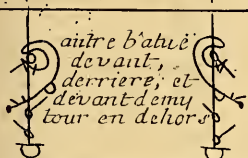 autre batuë
devant,
derriere, et
devant demy
tour en dehors